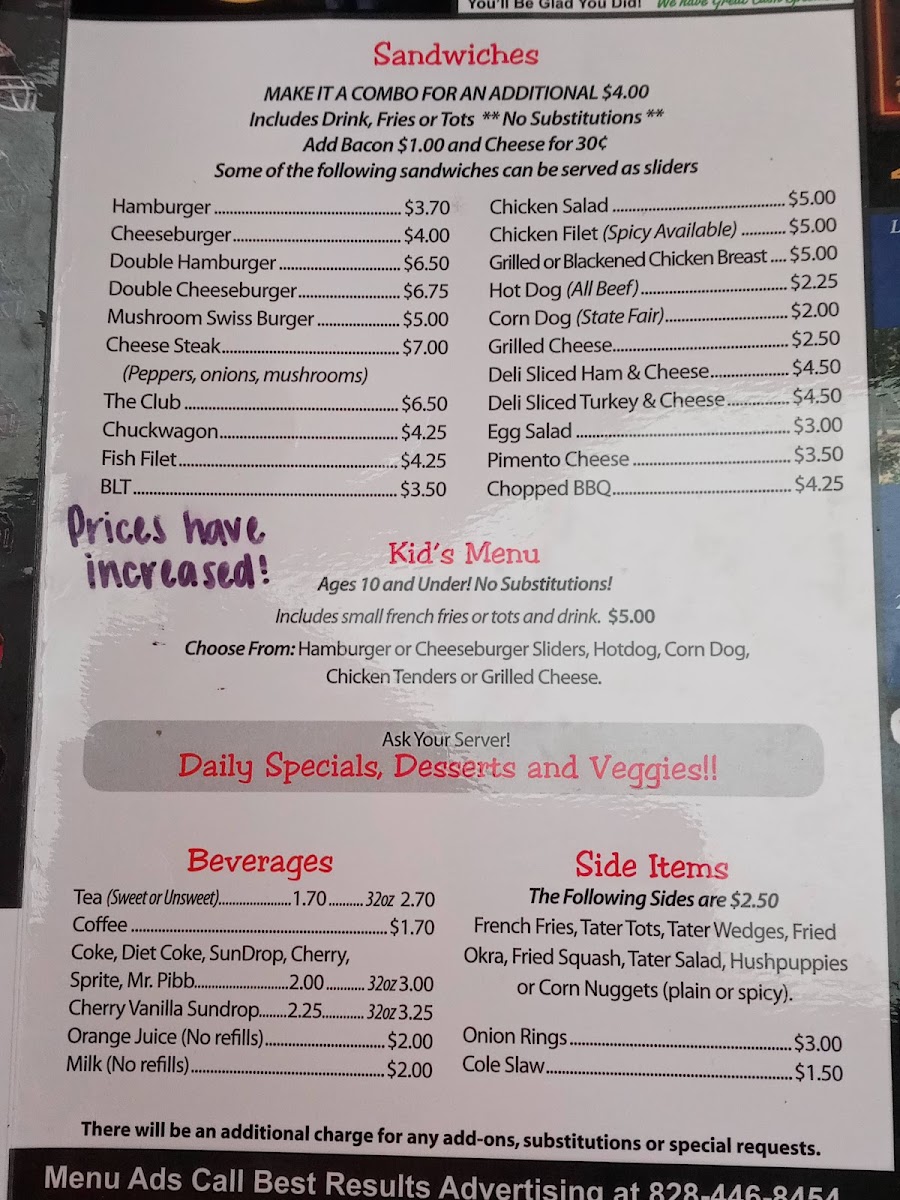 You'll Be Glad You Did!
Sandwiches
MAKE IT A COMBO FOR AN ADDITIONAL $4.00
Includes Drink, Fries or Tots **No Substitutions**
Add Bacon $1.00 and Cheese for 30¢
Some of the following sandwiches can be served as sliders
Hamburger $3.70
Cheeseburger $4.00
Double Hamburger $6.50
Double Cheeseburger $6.75
Mushroom Swiss Burger $5.00
Cheese Steak $7.00
(Peppers, onions, mushrooms)
The Club $6.50
Chuckwagon $4.25
Fish Filet $4.25
BLT $3.50
Chicken Salad $5.00
Chicken Filet (Spicy Available) $5.00
Grilled or Blackened Chicken Breast $5.00
Hot Dog (All Beef) $2.25
Corn Dog (State Fair) $2.00
Grilled Cheese $2.50
Deli Sliced Ham & Cheese $4.50
Deli Sliced Turkey & Cheese $4.50
Egg Salad $3.00
Pimento Cheese $3.50
Chopped BBQ $4.25
Prices have
increased!
Kid's Menu
Ages 10 and Under! No Substitutions!
Includes small french fries or tots and drink. $5.00
Choose From: Hamburger or Cheeseburger Sliders, Hotdog, Corn Dog,
Chicken Tenders or Grilled Cheese.
Ask Your Server!
Daily Specials, Desserts and Veggies!!
Beverages
Tea (Sweet or Unsweet) 1.70 32oz 2.70
Coffee $1.70
Coke, Diet Coke, SunDrop, Cherry,
Sprite, Mr. Pibb 2.00 32oz 3.00
Cherry Vanilla Sundrop 2.25 32oz 3.25
Orange Juice (No refills) $2.00
Milk (No refills) $2.00
Side Items
The Following Sides are $2.50
French Fries, Tater Tots, Tater Wedges, Fried
Okra, Fried Squash, Tater Salad, Hushpuppies
or Corn Nuggets (plain or spicy).
Onion Rings $3.00
Cole Slaw $1.50
There will be an additional charge for any add-ons, substitutions or special requests.
Menu Ads Call Best Results Advertising at 828-446-8454